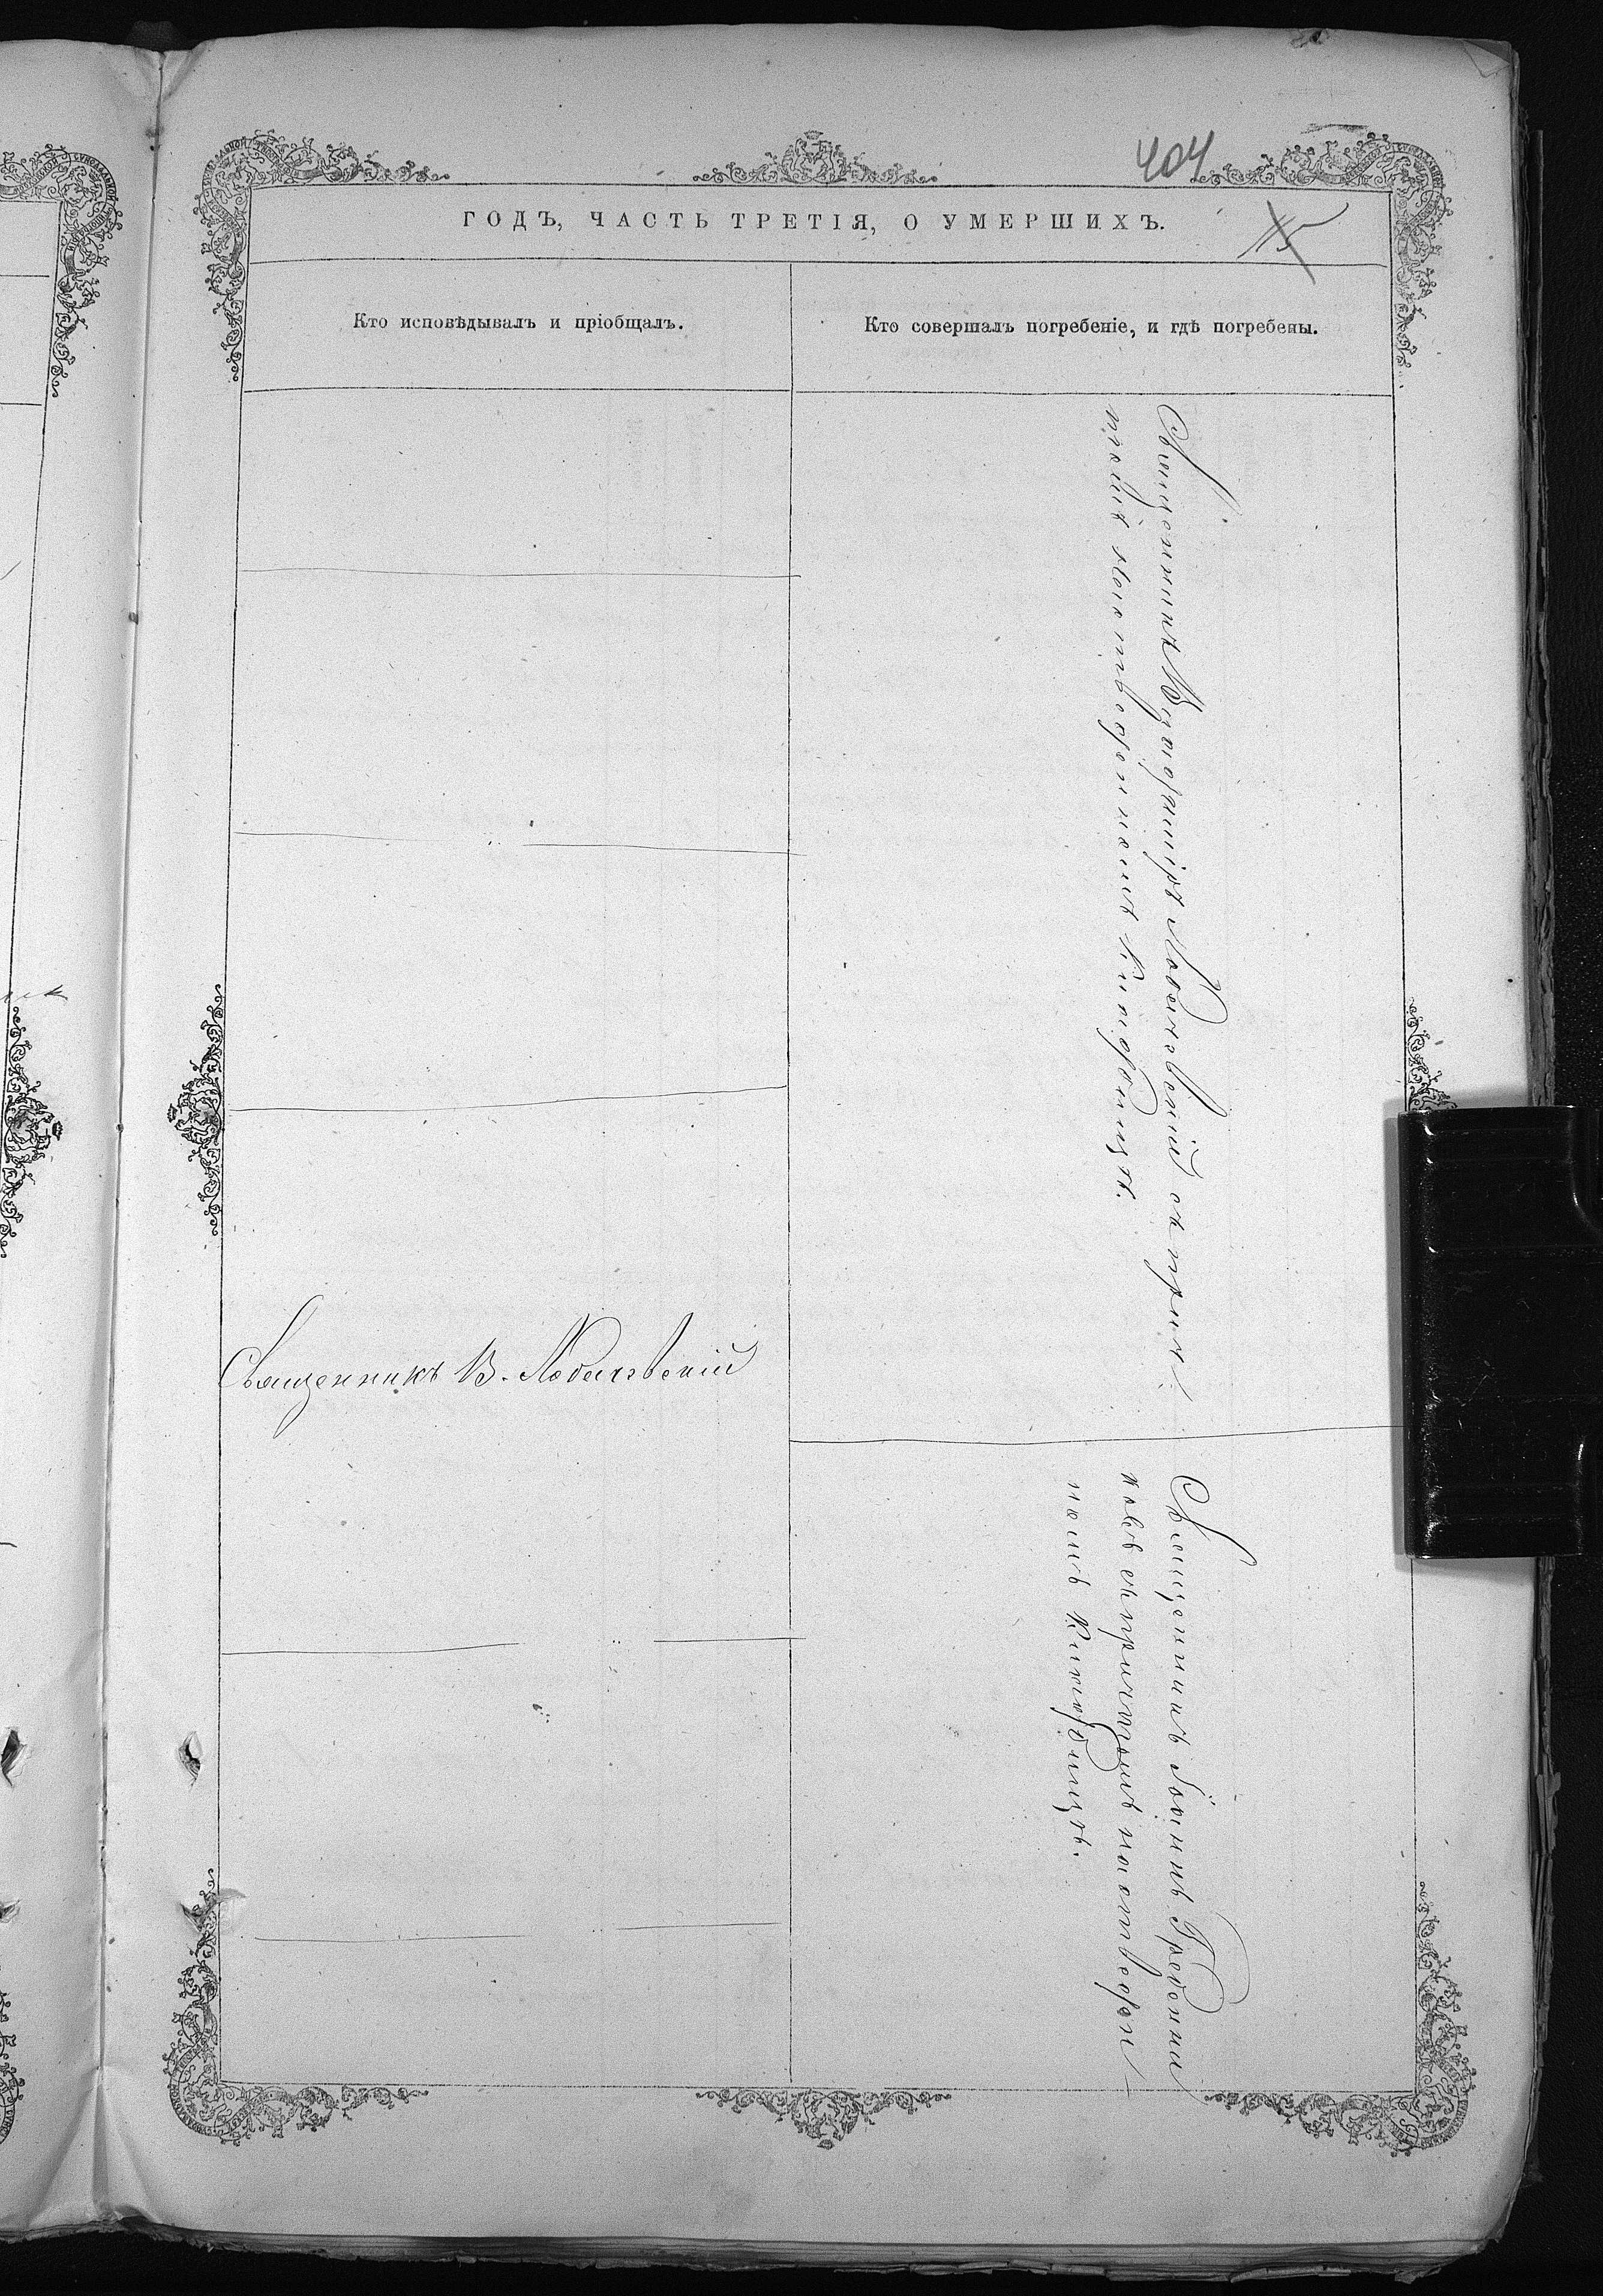 404
ГОДЪ, ЧАСТЬ ТРЕТІЯ, О УМЕРШИХЪ.
Кто исповѣдывалъ и пріобщалъ.
Кто совершалъ погребеніе, и гдѣ погребены.
Священникъ В.
Священникъ Владиміръ съ прич-
томъ на отведенномъ кладбищѣ.
Священникъ Іоаннъ
съ причтомъ на отведен-
номъ кладбищѣ.